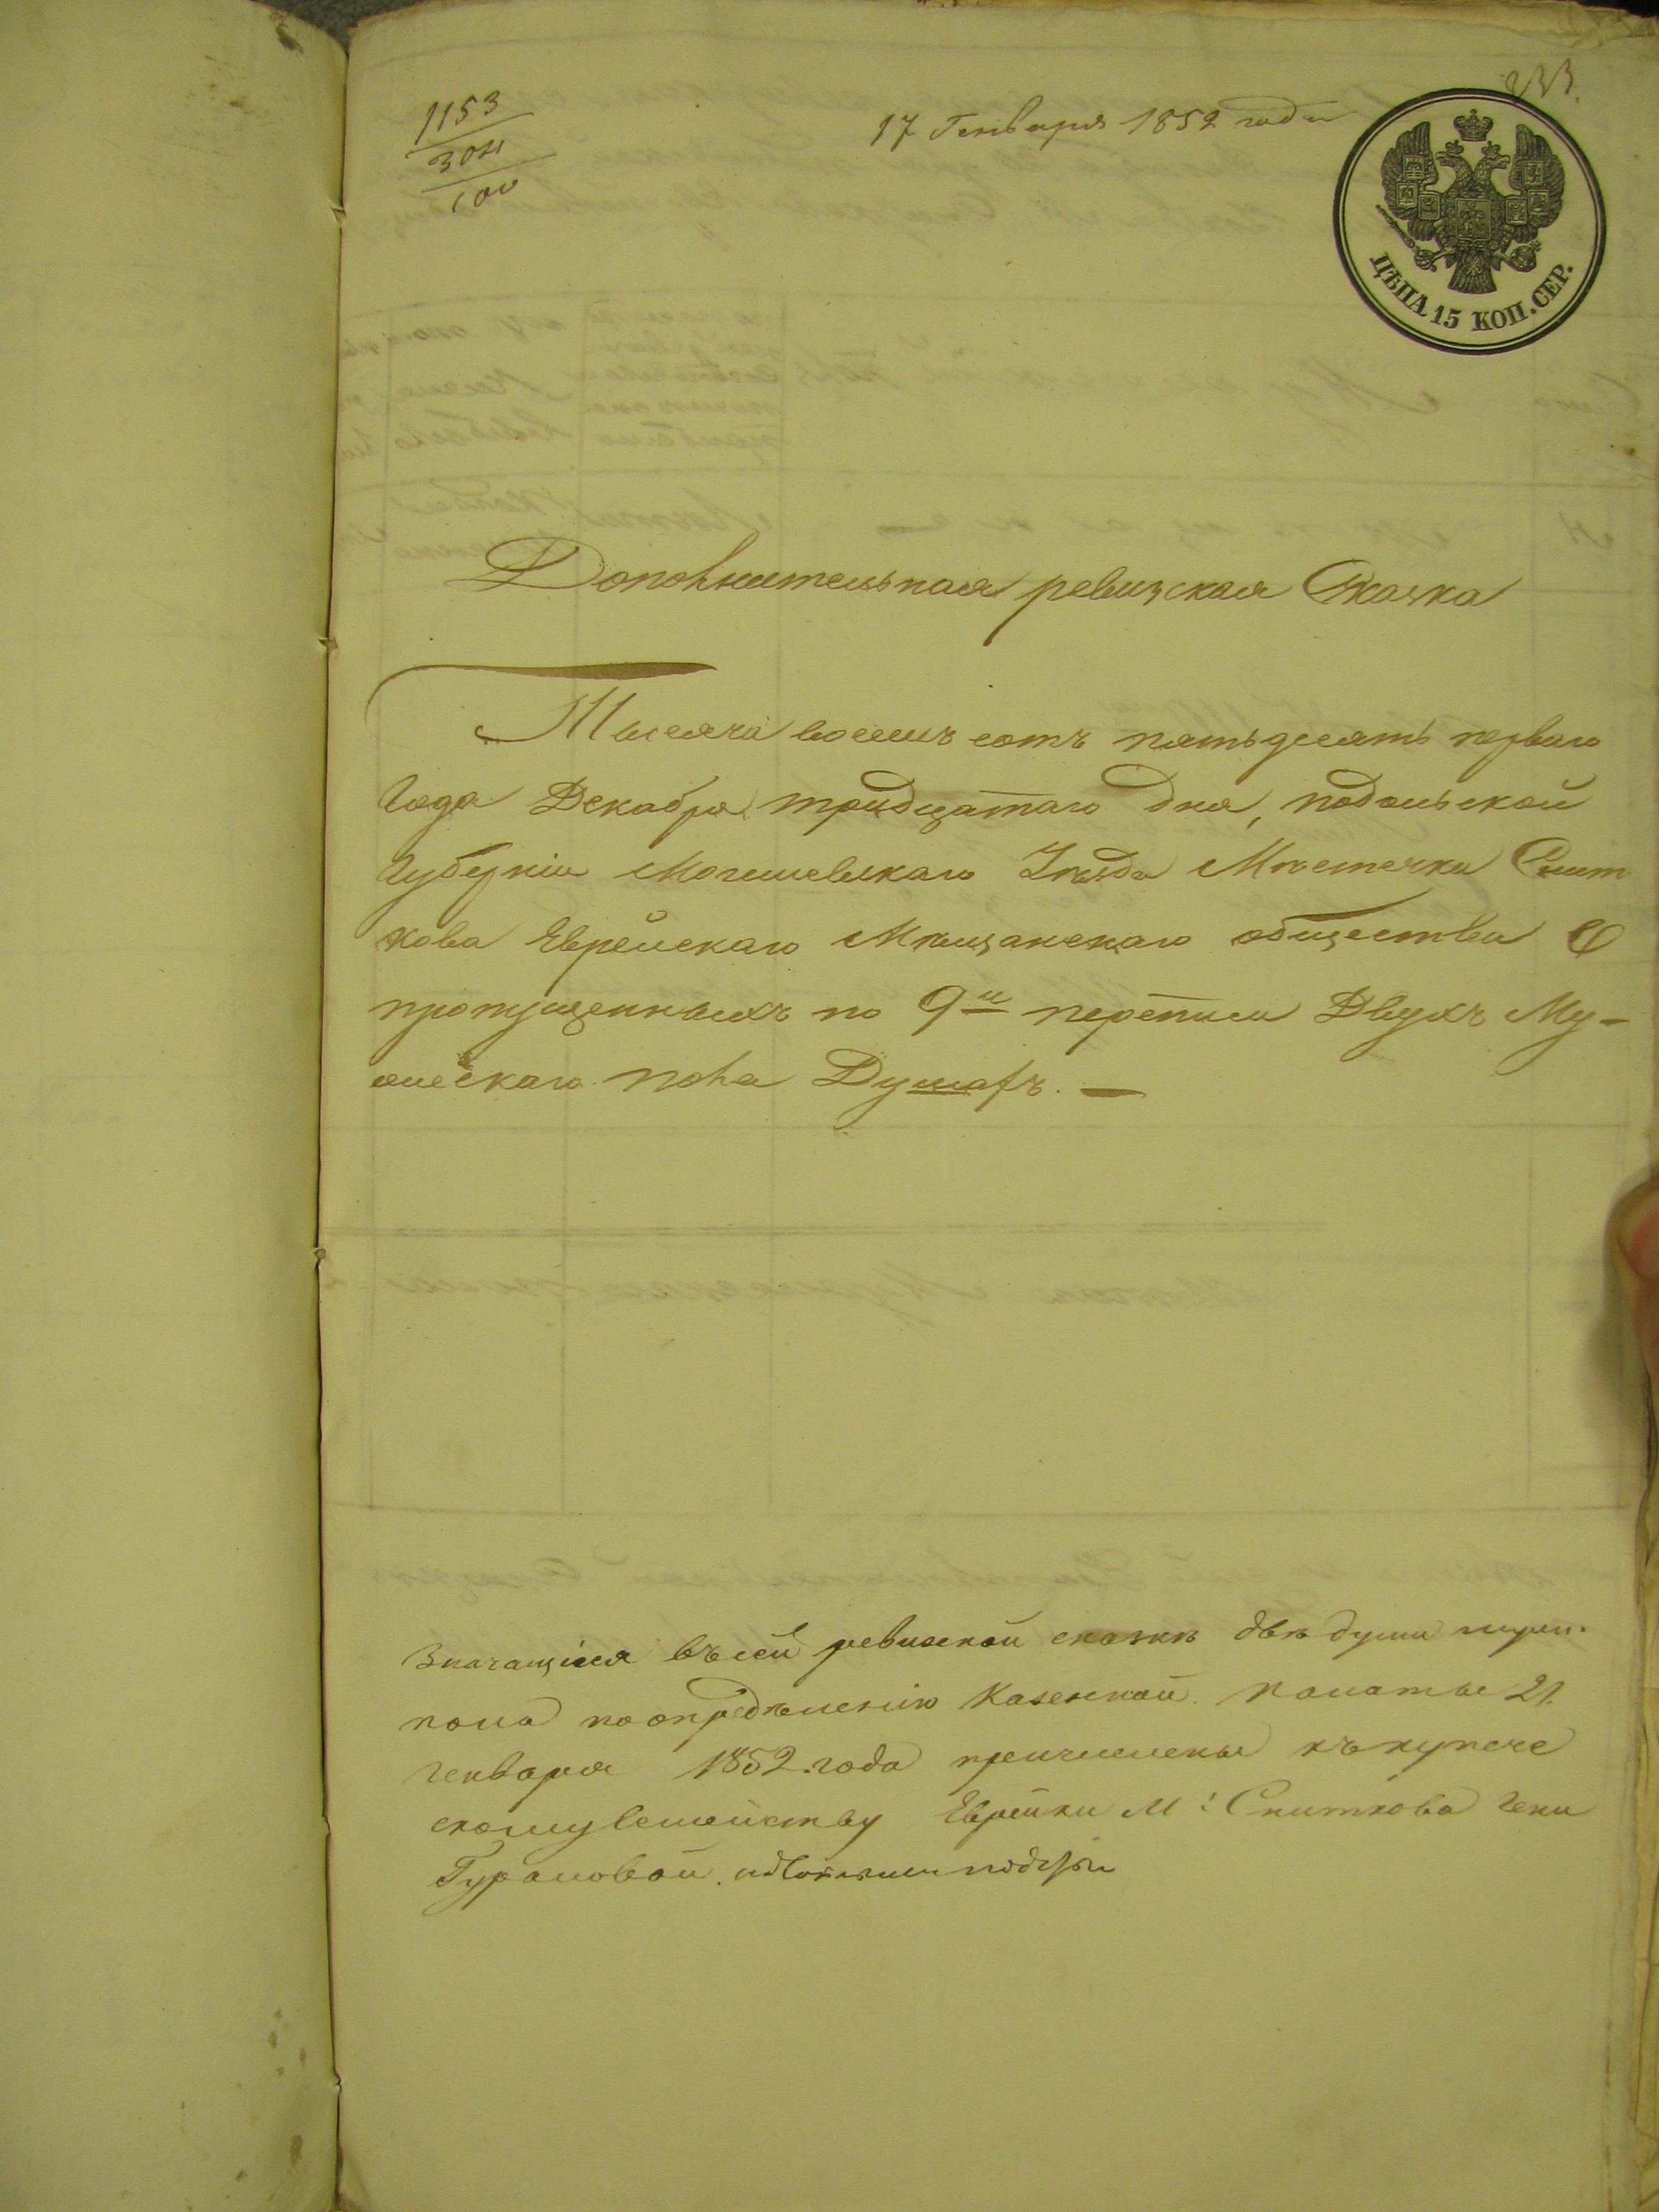 1153
304
100
17 Генваря 1852 года
233.
ЦѢНА 15 КОП. СЕР.
Дополнительная ревизская Сказка
Тысяча восемь сотъ пятьдесятъ перваго
Года Декабря тридцатаго дня, подольской
Губерніи Могилевскаго Уѣзда Мѣстечка Снит
кова Еврейскаго Мѣщанскаго общества О
пропущенныхъ по 9й переписи Двухъ Му-
жескаго пола Душахъ. —
Значащіеся въ сей ревизской сказкѣ двѣ души муж.
пола по опредѣленію Казенной Палаты 21.
Генваря 1852. года причислены къ купече
скому семейству Еврейки М: Сниткова Гени
Гураловой.